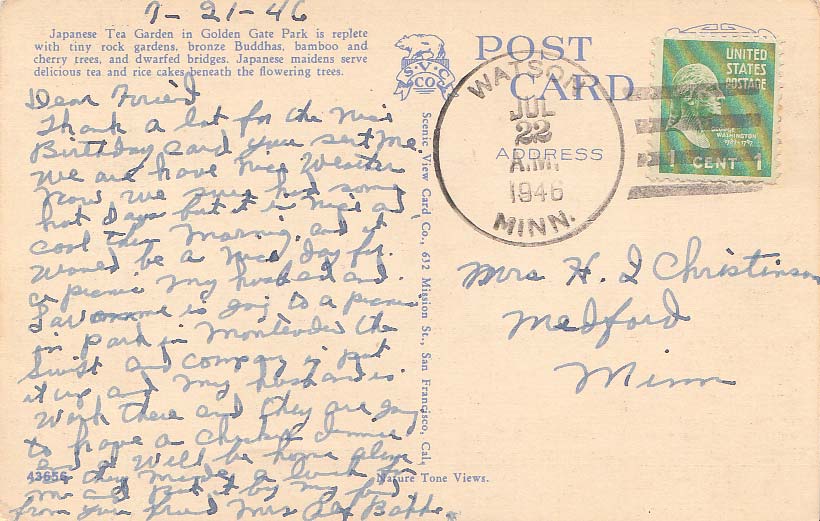 7-21-46
Japanese Tea Garden in Golden Gate Park is replete
with tiny rock gardens, bronze Buddhas, bamboo and
cherry trees, and dwarfed bridges. Japanese maidens serve
delicious tea and rice cakes beneath the flowering trees.
Dear Friend
Thank a lot for the Nice
Birthday card you sent me.
We are have Nice Weather
Now we sure had some
hot Days but it is Nice and
cool this Morning. and it
Would be a Nice day for
a picnic My husband and
is going to a picnic
in park in Montevideo the
Swift and Company is put
it up and My husband is
Work there and they are going
to have a Chicken dinner
and I Will be home alone
they made a lunch for
me and put it by my
from your friend Mrs
43656
S.V.C. CO.
Scenic View Card Co., 632 Mission St., San Francisco, Cal.
Nature Tone Views.
POST
CARD
ADDRESS
WATSON
JUL
22
A.M.
1946
MINN.
UNITED
STATES
POSTAGE
GEORGE
WASHINGTON
1789-1797
1 CENT 1
Mrs H. I Christinson
Medford
Minn